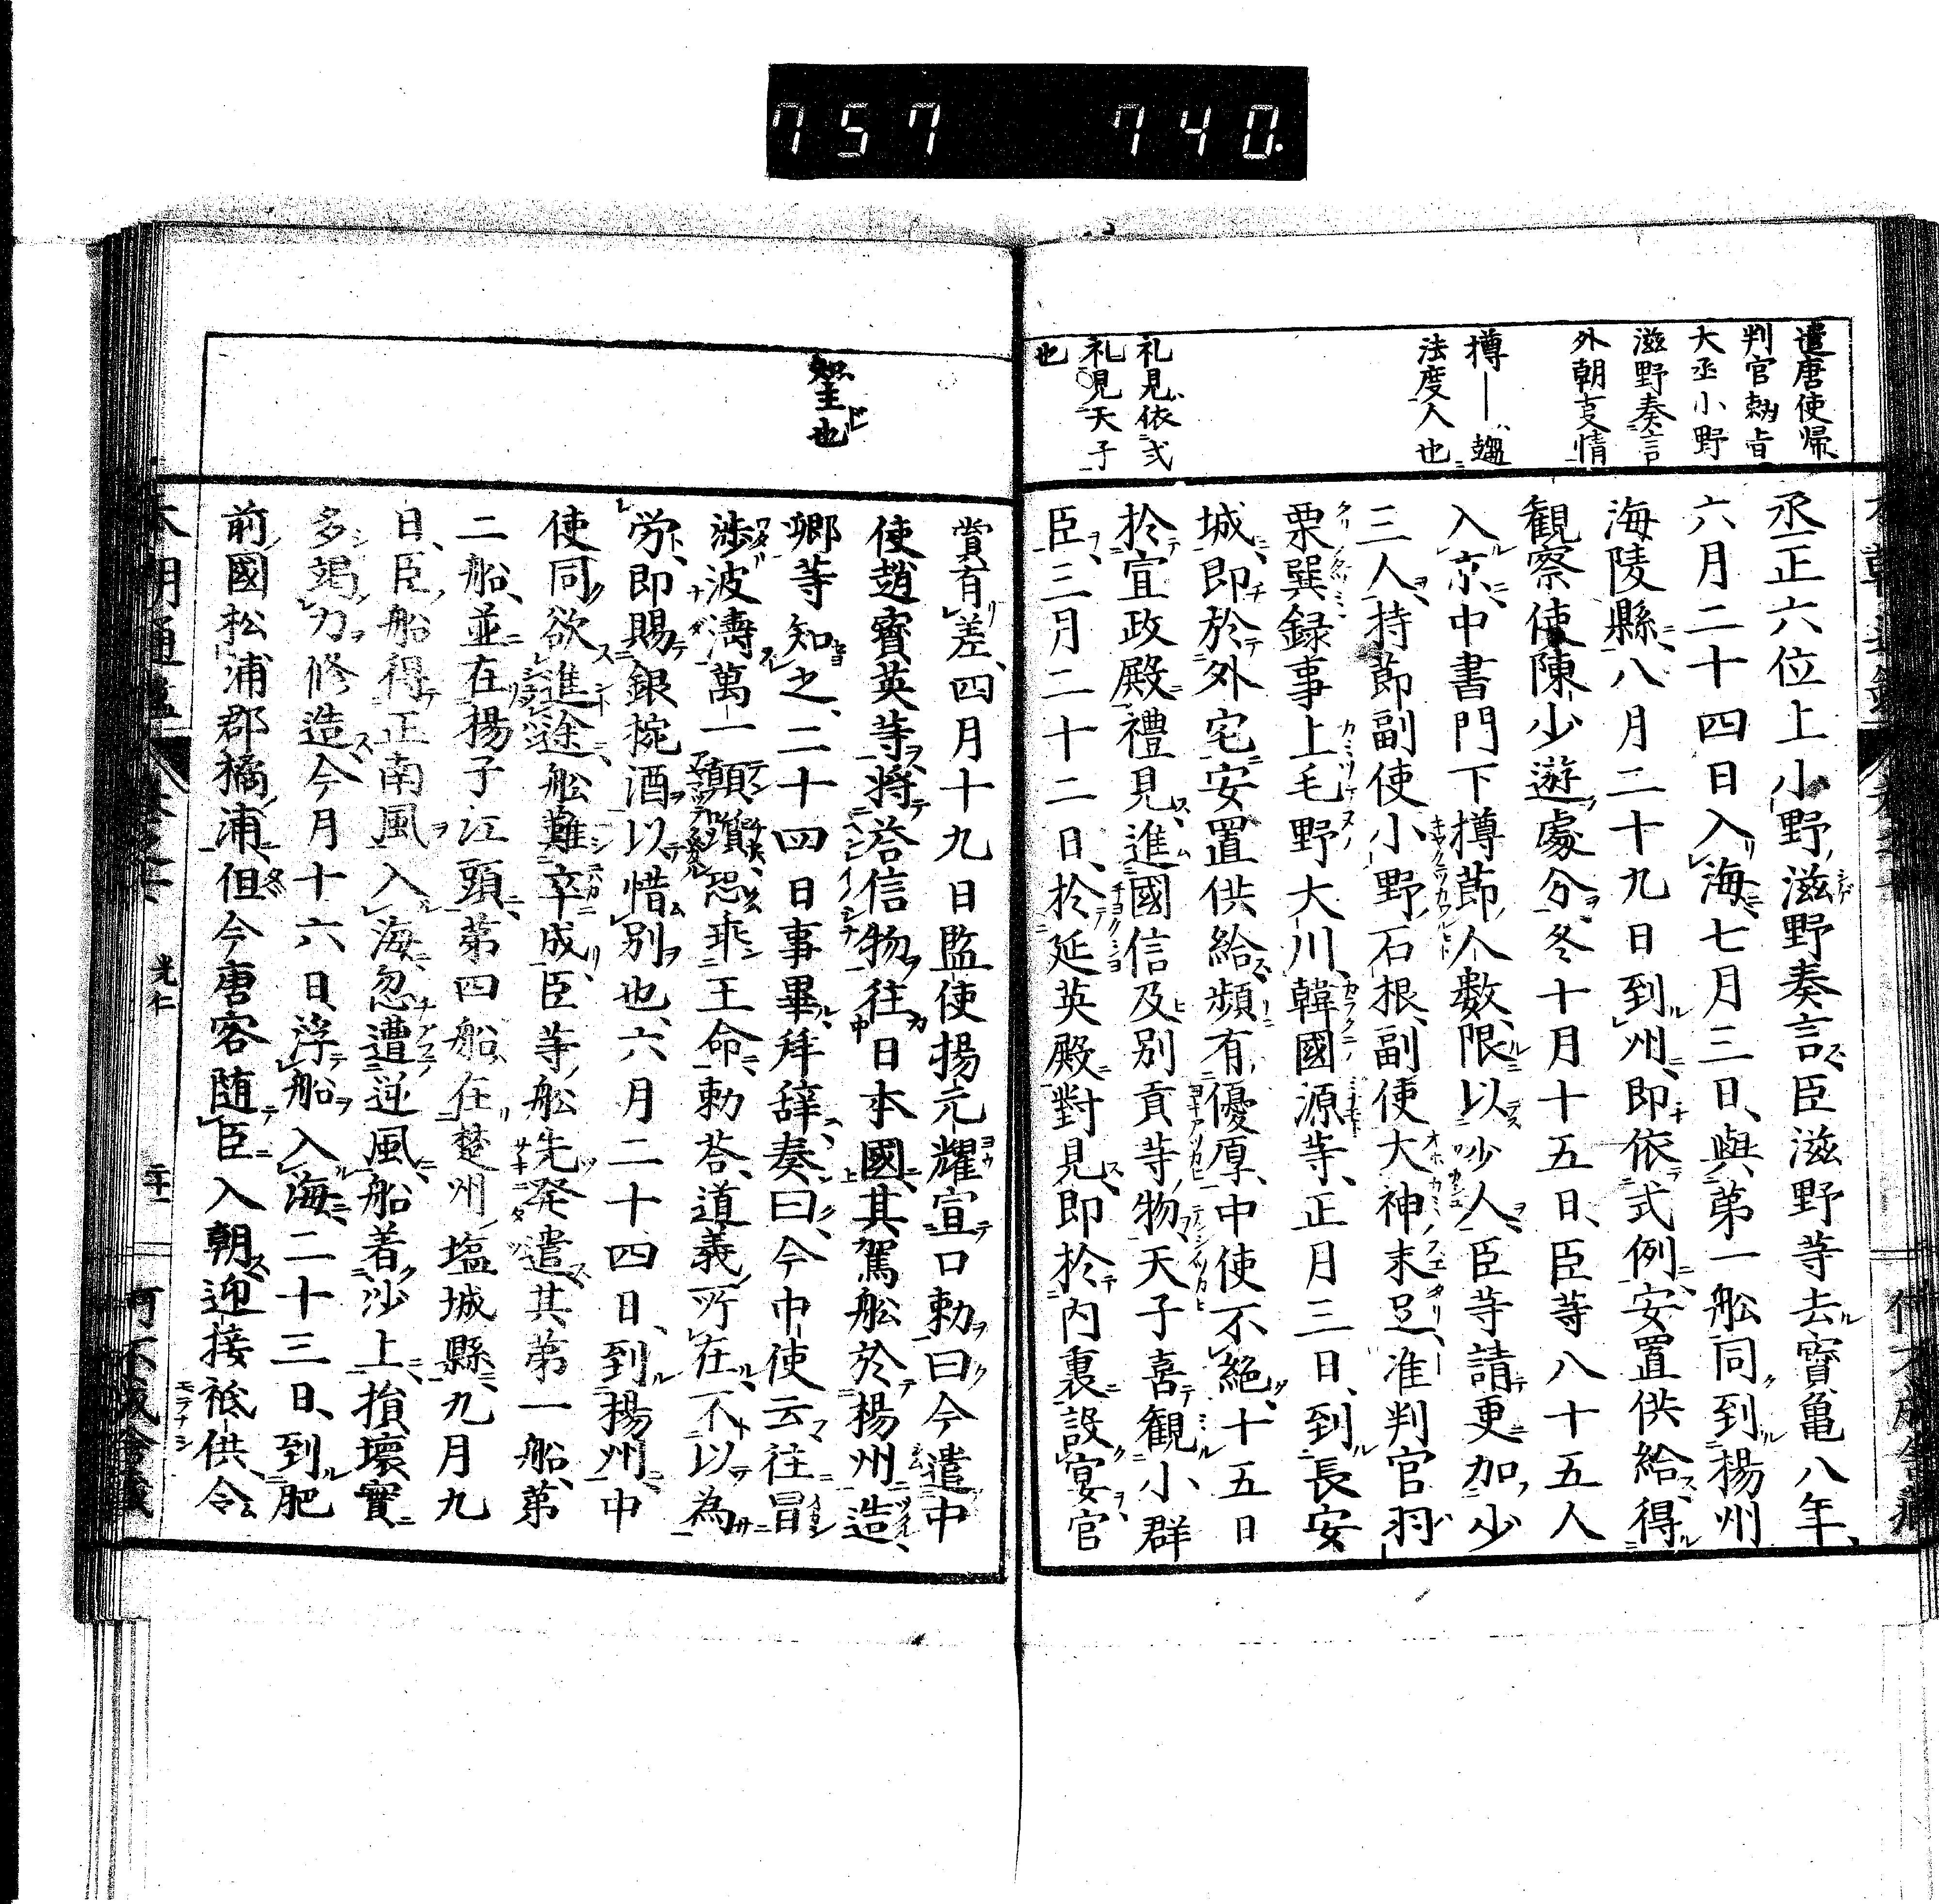 757 740.
遣唐使帰
判官勅旨
大丞小野
滋野奏言
外朝㕝情
樽――趨
法度人也
礼見依式
礼見天子
也
丞正六位上小野滋野奏言臣滋野等去寳亀八年
六月二十四日入海七月三日與第一舩同到揚州
海陵縣八月二十九日到州即依式例安置供給得
観察使陳少遊處分冬十月十五日臣等八十五人
入京中書門下樽節人数限以少人臣等請更加少
三人持節副使小野石根副使大神末足准判官羽
栗巽録事上毛野大川韓國源等正月三日到長安
城即於外宅安置供給頻有優厚中使不絶十五日
於宣政殿禮見進國信及別貢等物天子喜観小群
臣三月二十二日於延英殿對見即於内裏設宴官
知主也
賞有差四月十九日監使揚元耀宣口勅曰今遣中
使趙寳英等将荅信物往日本國其駕舩於楊州造
卿等知之二十四日事畢拜辞奏曰今中使云往冒
渉波濤萬一顛躓恐乖王命勅荅道義所在不以為
労即賜銀椀酒以惜別也六月二十四日到揚州中
使同欲進途舩難卒成臣等舩先発遣其第一船第
二船並在揚子江頭第四船在楚州塩城縣九月九
日臣船得正南風入海忽遭逆風船着沙上損壞實
多竭力修造今月十六日浮船入海二十三日到肥
前國松浦郡橘浦但今唐客随臣入朝迎接祗供令
本朝通鑑
光仁
二十一